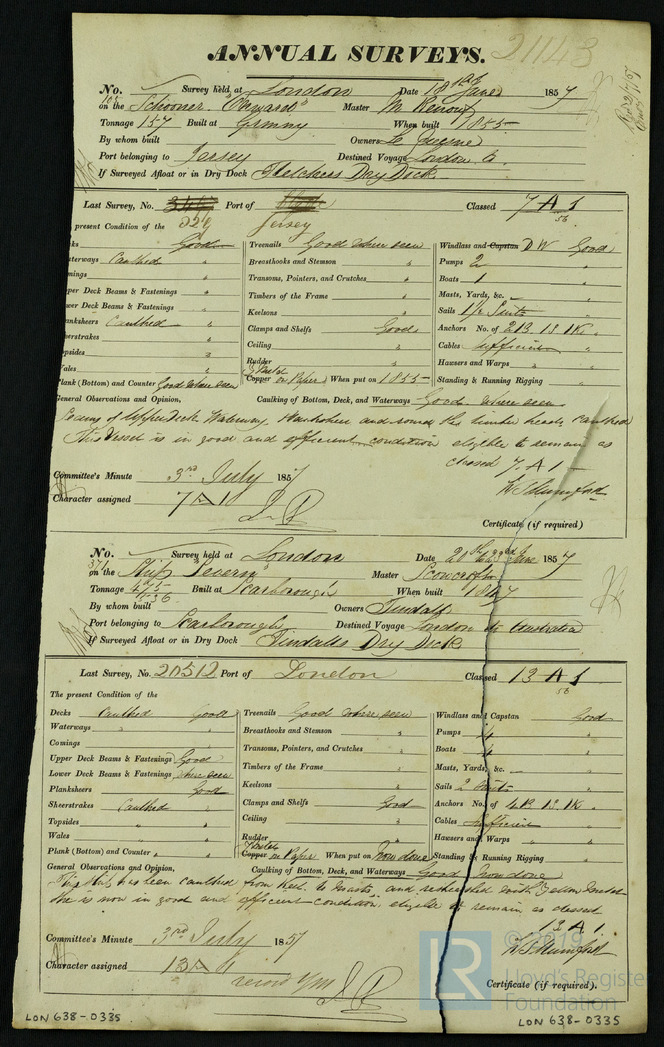 ANNUAL SURVEYS. 21143
No. Survey held at London Date 18th June 1857
on the Schooner "Onward" Master M Renouf
Tonnage 157 Built at When built 1855
By whom built Owners Le
Port belonging to Jersey Destined Voyage London to
If Surveyed Afloat or in Dry Dock Fletchers Dry Dock
Last Survey, No. Port of Classed 7 A 1
Jersey 56
present Condition of the
Good Treenails Good where seen Windlass and Capstan D W Good
Caulked Breasthooks and Stemson " Pumps 2 "
mings Transoms, Pointers, and Crutches " Boats 1 "
per Deck Beams & Fastenings " Timbers of the Frame " Masts, Yards, &c. "
wer Deck Beams & Fastenings " Keelsons " Sails 1½ Suits "
anksheers Caulked " Clamps and Shelfs Good Anchors No. of 2 B. 1 S. 1 K. "
eerstrakes " Ceiling " Cables Sufficient "
opsides " Rudder " Hawsers and Warps "
Vales " Copper on Paper When put on 1855 Standing & Running Rigging "
Plank (Bottom) and Counter Good where seen
General Observations and Opinion, Caulking of Bottom, Deck, and Waterways Good where seen
of Upperdeck Waterway and round the timber heads caulked
This Vessel is in good and efficient condition eligible to remain as
classed 7. A 1 -
Committee's Minute 3rd July 1857
W S Mumford
Character assigned 7 A 1
Certificate (if required)
No. Survey held at London Date 20th & 23rd June 1857
on the Ship "Severn" Master
Tonnage Built at Scarborough When built 1847
By whom built Owners Tindall
Port belonging to Scarborough Destined Voyage London to Australia
If Surveyed Afloat or in Dry Dock Tindalls Dry Dock
Last Survey, No. 20512 Port of London Classed 13 A 1
56
The present Condition of the
Decks Caulked Good Treenails Good where seen Windlass and Capstan Good
Waterways " Breasthooks and Stemson " Pumps "
Comings " Transoms, Pointers, and Crutches " Boats 4 "
Upper Deck Beams & Fastenings Good Timbers of the Frame " Masts, Yards, &c. "
Lower Deck Beams & Fastenings where seen Keelsons " Sails 2 Suits "
Planksheers Good Clamps and Shelfs Good Anchors No. of 4 B. 1 S. 1 K. "
Sheerstrakes Caulked " Ceiling " Cables Sufficient "
Topsides " Rudder " Hawsers and Warps "
Wales " Copper on Paper When put on Now done Standing & Running Rigging "
Plank (Bottom) and Counter "
General Observations and Opinion, Caulking of Bottom, Deck, and Waterways Good Now done
This Ship has been caulked from keel to and with Yellow Metal
She is now in good and efficient condition eligible to remain as classed
13 A 1.
Committee's Minute 3rd July 1857
W S Mumford
Character assigned 13 A 1
Certificate (if required).
LR © 2019
Lloyd's Register
Foundation
LON 638-0335 LON 638-0335